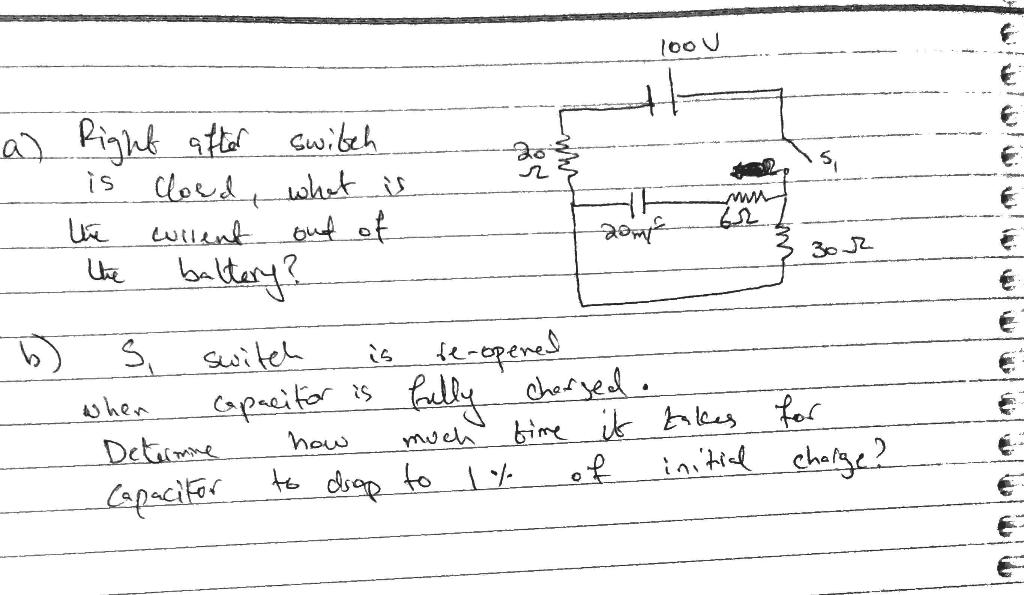 100V
a) Right after switch
is closed, what is
the current out of
the battery?
20
Ω
S₁
20mF
6Ω
30Ω
b) S₁ switch is re-opened
when capacitor is fully charged.
Determine how much time it takes for
capacitor to drop to 1% of initial charge?